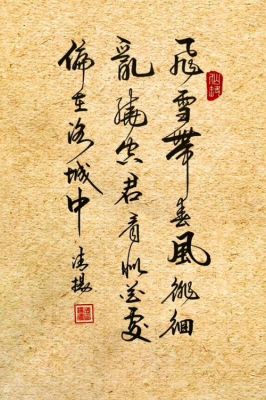 飛雪帶春風徘徊
亂繞空君看似花處
偏在洛城中
清揚